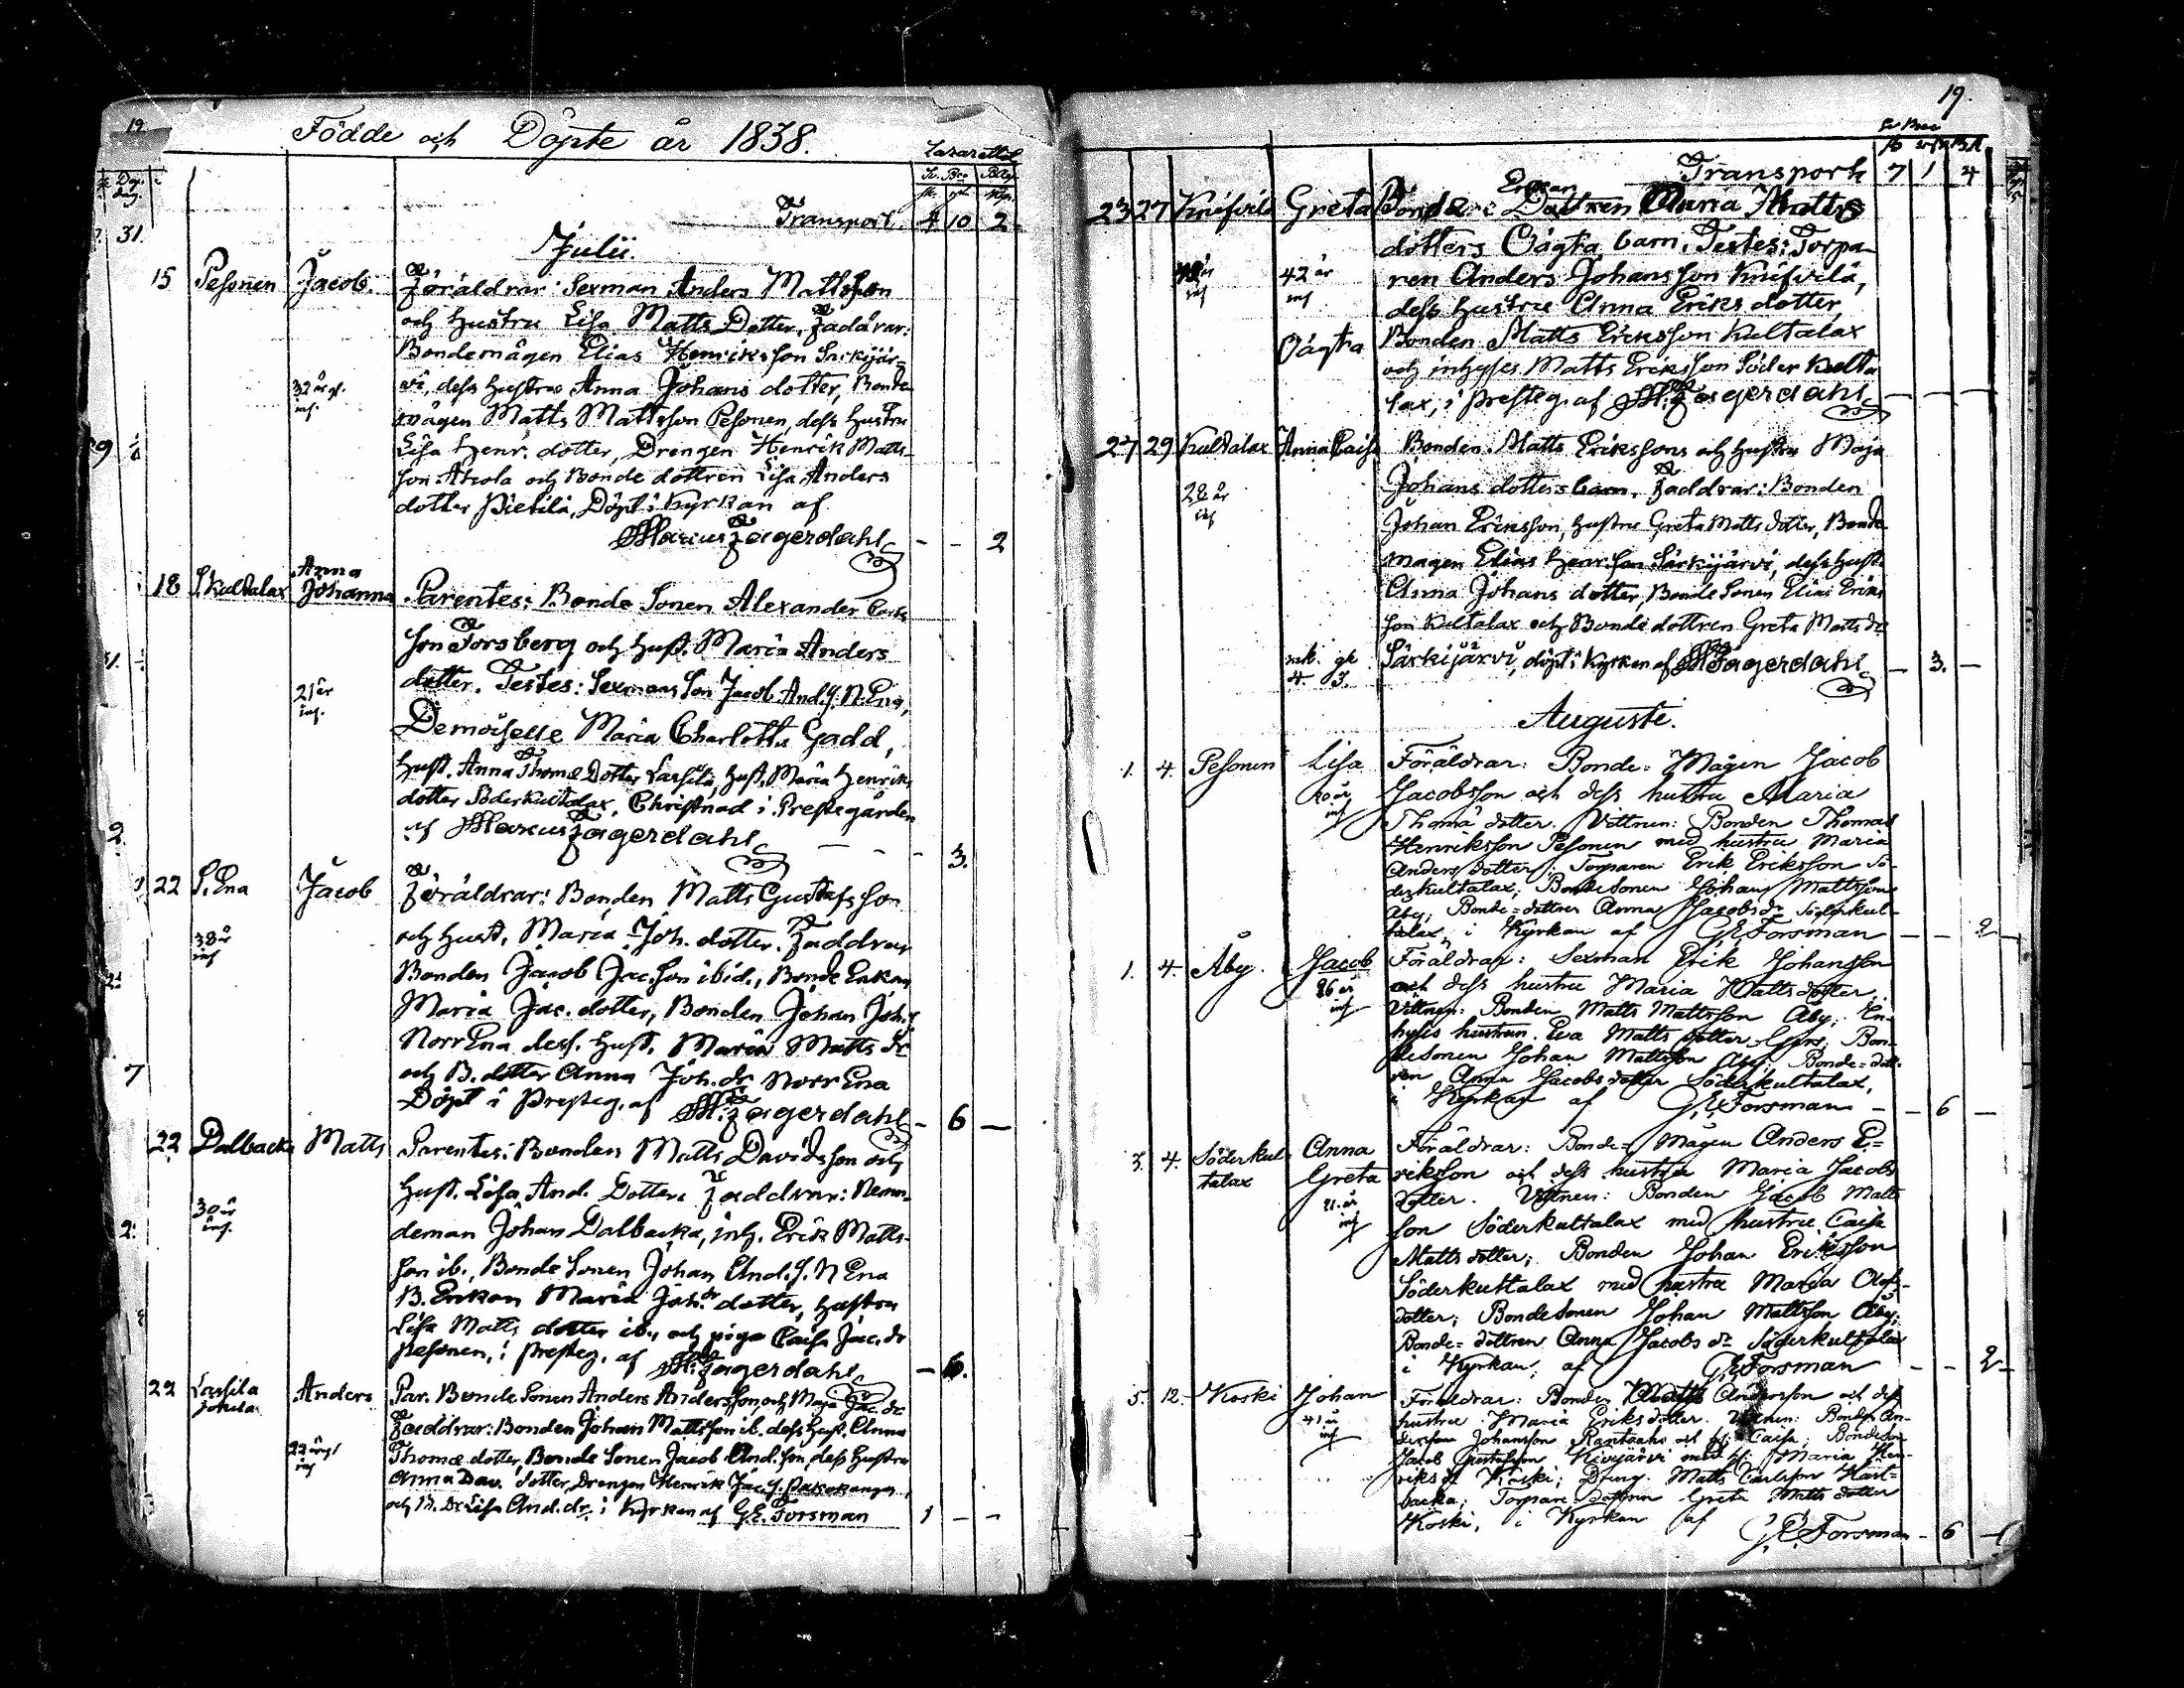 19
Födde och Döpte år 1838.
Lazarettet
Transport. 4 10 2
31.
Julii.
15 Pesonen Jacob. Föräldrar: Sexman Anders Mattsson
och hustru Lisa Matts Dotter. Faddrar:
Bondemågen Elias Henriksson Särkijär-
vi, dess hustru Anna Johans dotter, Bonde
32 år gl. mågen Matts Mattsson Pesonen, dess hustru
Lisa Henr. dotter, Drengen Henrik Matts-
son Ahola och Bonde dottren Lisa Anders
dotter Pietilä, Döpt i Kyrkan af
Marcus Fagerdahl - - 2
18 S. Kultalax Anna Johanna Parentes: Bonde Sonen Alexander Carls
son Forsberg och Hust. Maria Anders
21 år dotter. Testes: Sexmans Son Jacob And. S. N. Ena,
Demoiselle Maria Charlotta Gadd,
Hust. Anna Thomæ Dotter Lassila, Hust. Maria Henriks
dotter Söderkultalax. Christnad i Prestegården
af Marcus Fagerdahl - - 3.
22 S. Ena Jacob Föräldrar: Bonden Matts Gustafsson
38 år och Hust. Maria Joh. dotter. Faddrar
Bonden Jacob Jac. Son ibid., Bonde Enkan
Maria Jac. dotter, Bonden Johan Joh. S.
Norr Ena dess. Hust. Maria Matts dr
och B. dotter Anna Joh. dr Norr Ena
Döpt i Presteg. af M. Fagerdahl - 6 -
22 Dalbacka Matts Parentes: Bonden Matts Davidsson och
Hust. Lisa And. Dotter. Faddrar: Nemn-
30 år deman Johan Dalbacka, inh. Erik Matts-
son ib., Bonde Sonen Johan And. S. N Ena
B. Enkan Maria Joh. dotter, Hustru
Lisa Matts dotter ib., och piga Caisa Jac. dr
Pesonen, i Presteg. af M. Fagerdahl - 6.
22 Lassila Anders Par. Bonde Sonen Anders Andersson och Maja Jac. dr
Faddrar: Bonden Johan Mattsson ib. dess Hust. Anna
22 år gl Thomæ dotter, Bonde Sonen Jacob And. son, dess Hustru
Anna Dav. dotter, Drengen Henrik Jac. S.
och B. Dr Lisa And. dr i Kyrkan af G.E. Forsman 1 - -
19.
Transport 7 1 4
23 27 Knifsilä Greta Bonde Enkan Dottren Maria Matts
dotters Oägta barn. Testes: Torpa-
42 år ren Anders Johansson Knifsilä,
dess hustru Anna Eriks dotter,
Oägta Bonden Matts Eriksson Kultalax
och inhyses Matts Eriksson Söder Kulta
lax, i Presteg. af M. Fagerdahl - - -
27 29 Kultalax Anna Caisa Bonden Matts Erikssons och hustru Maja
28 år Johans dotters barn. Faddrar: Bonden
Johan Eriksson, hustru Greta Matts dotter, Bonde
mågen Elias Henr. Son Särkijärvi, dess hust.
Anna Johans dotter, Bonde Sonen Elias Eriks
son Kultalax och Bonde dottren Greta Matts dr
Särkijärvi, döpt i Kyrkan af M Fagerdahl - 3. -
Augusti.
1. 4. Pesonen Lisa Föräldrar: Bonde-Mågen Jacob
Jacobsson och dess hustru Maria
Thomä dotter. Vittnen: Bonden Thomas
Henriksson Pesonen med hustru Maria
Anders dotter; Torparen Erik Eriksson Sö-
derkultalax; Bondesonen Johan Mattsson
Åby; Bonde-dottren Anna Jacobs dr Söderkul-
talax, i Kyrkan af G.E. Forsman - - 2
1. 4. Åby. Jacob Föräldrar: Sexman Erik Johansson
26 år och dess hustru Maria Matts dotter.
Vittnen: Bonden Matts Mattsson Åby; In-
hyses hustrun Eva Matts dotter Gers; Bon-
desonen Johan Mattsson Åby; Bonde-dott-
ren Anna Jacobs dotter Söderkultalax,
i Kyrkan af G.E. Forsman - 6 -
3. 4. Söderkul- talax Anna Greta Föräldrar: Bonde-Mågen Anders E-
21 år riksson och dess hustru Maria Jacobs
dotter. Vittnen: Bonden Jacob Matts
son Söderkultalax med hustru Caisa
Matts dotter; Bonden Johan Eriksson
Söderkultalax med hustru Maria Olofs-
dotter; Bondesonen Johan Mattsson Åby;
Bonde-dottren Anna Jacobs dr Söderkultalax
i Kyrkan, af G.E. Forsman - - 2
5. 12. Koski Johan Föräldrar: Bonden Matts Andersson och dess
41 år hustru Maria Eriks dotter. Vittnen: Bonden An-
dersson Johansson Rantaaho och h. Caisa; Bonden
Jacob Gustafsson Kivijärvi med h. Maria Hen-
riks dr Koski; Dreng. Matts Carlsson Käst-
backa; Torpare-dottren Greta Matts dotter
Koski, i Kyrkan af G.E. Forsman - 6 -